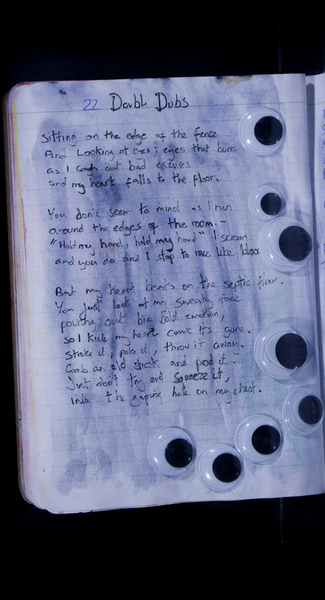 22 Doubl Dubs
Sitting on the edge of the fence
And Looking at eyes; eyes that burn
as I cough out bad excuses
and my heart falls to the floor.
You don't seem to mind as I run
around the edges of the room. -
"Hold my hand, hold my hand" I scream
and you do and I stop to race like
But my heart beats on the septic floor.
You just look at my sweaty face
pouring out big fold emotion,
so I kick my heart cause it's gone.
Stake it, poke it, throw it away.
Grab an old stick and prod it.
Just don't try and squeeze it,
Into the gaping hole on my chest.